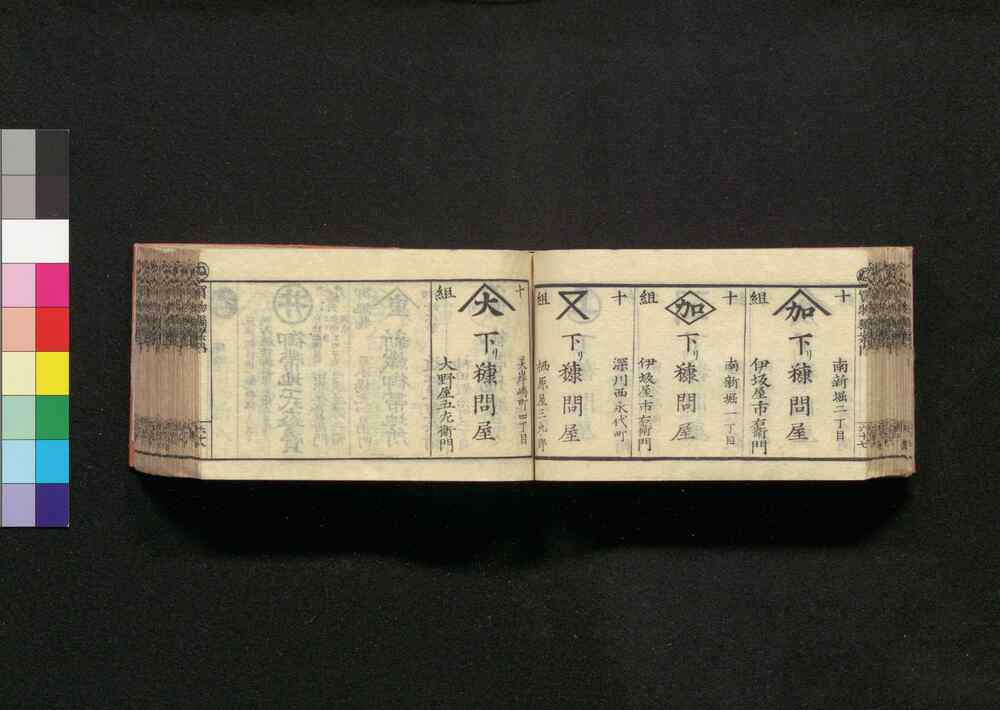 十
組
加
南新堀二丁目
下リ糠問屋
伊坂屋市右衛門
十
組
加
南新堀一丁目
下リ糠問屋
伊坂屋市右衛門
十
組
又
深川西永代町
下リ糠問屋
栖原屋三九郎
十
組
大
下リ糠問屋
大野屋五左衛門